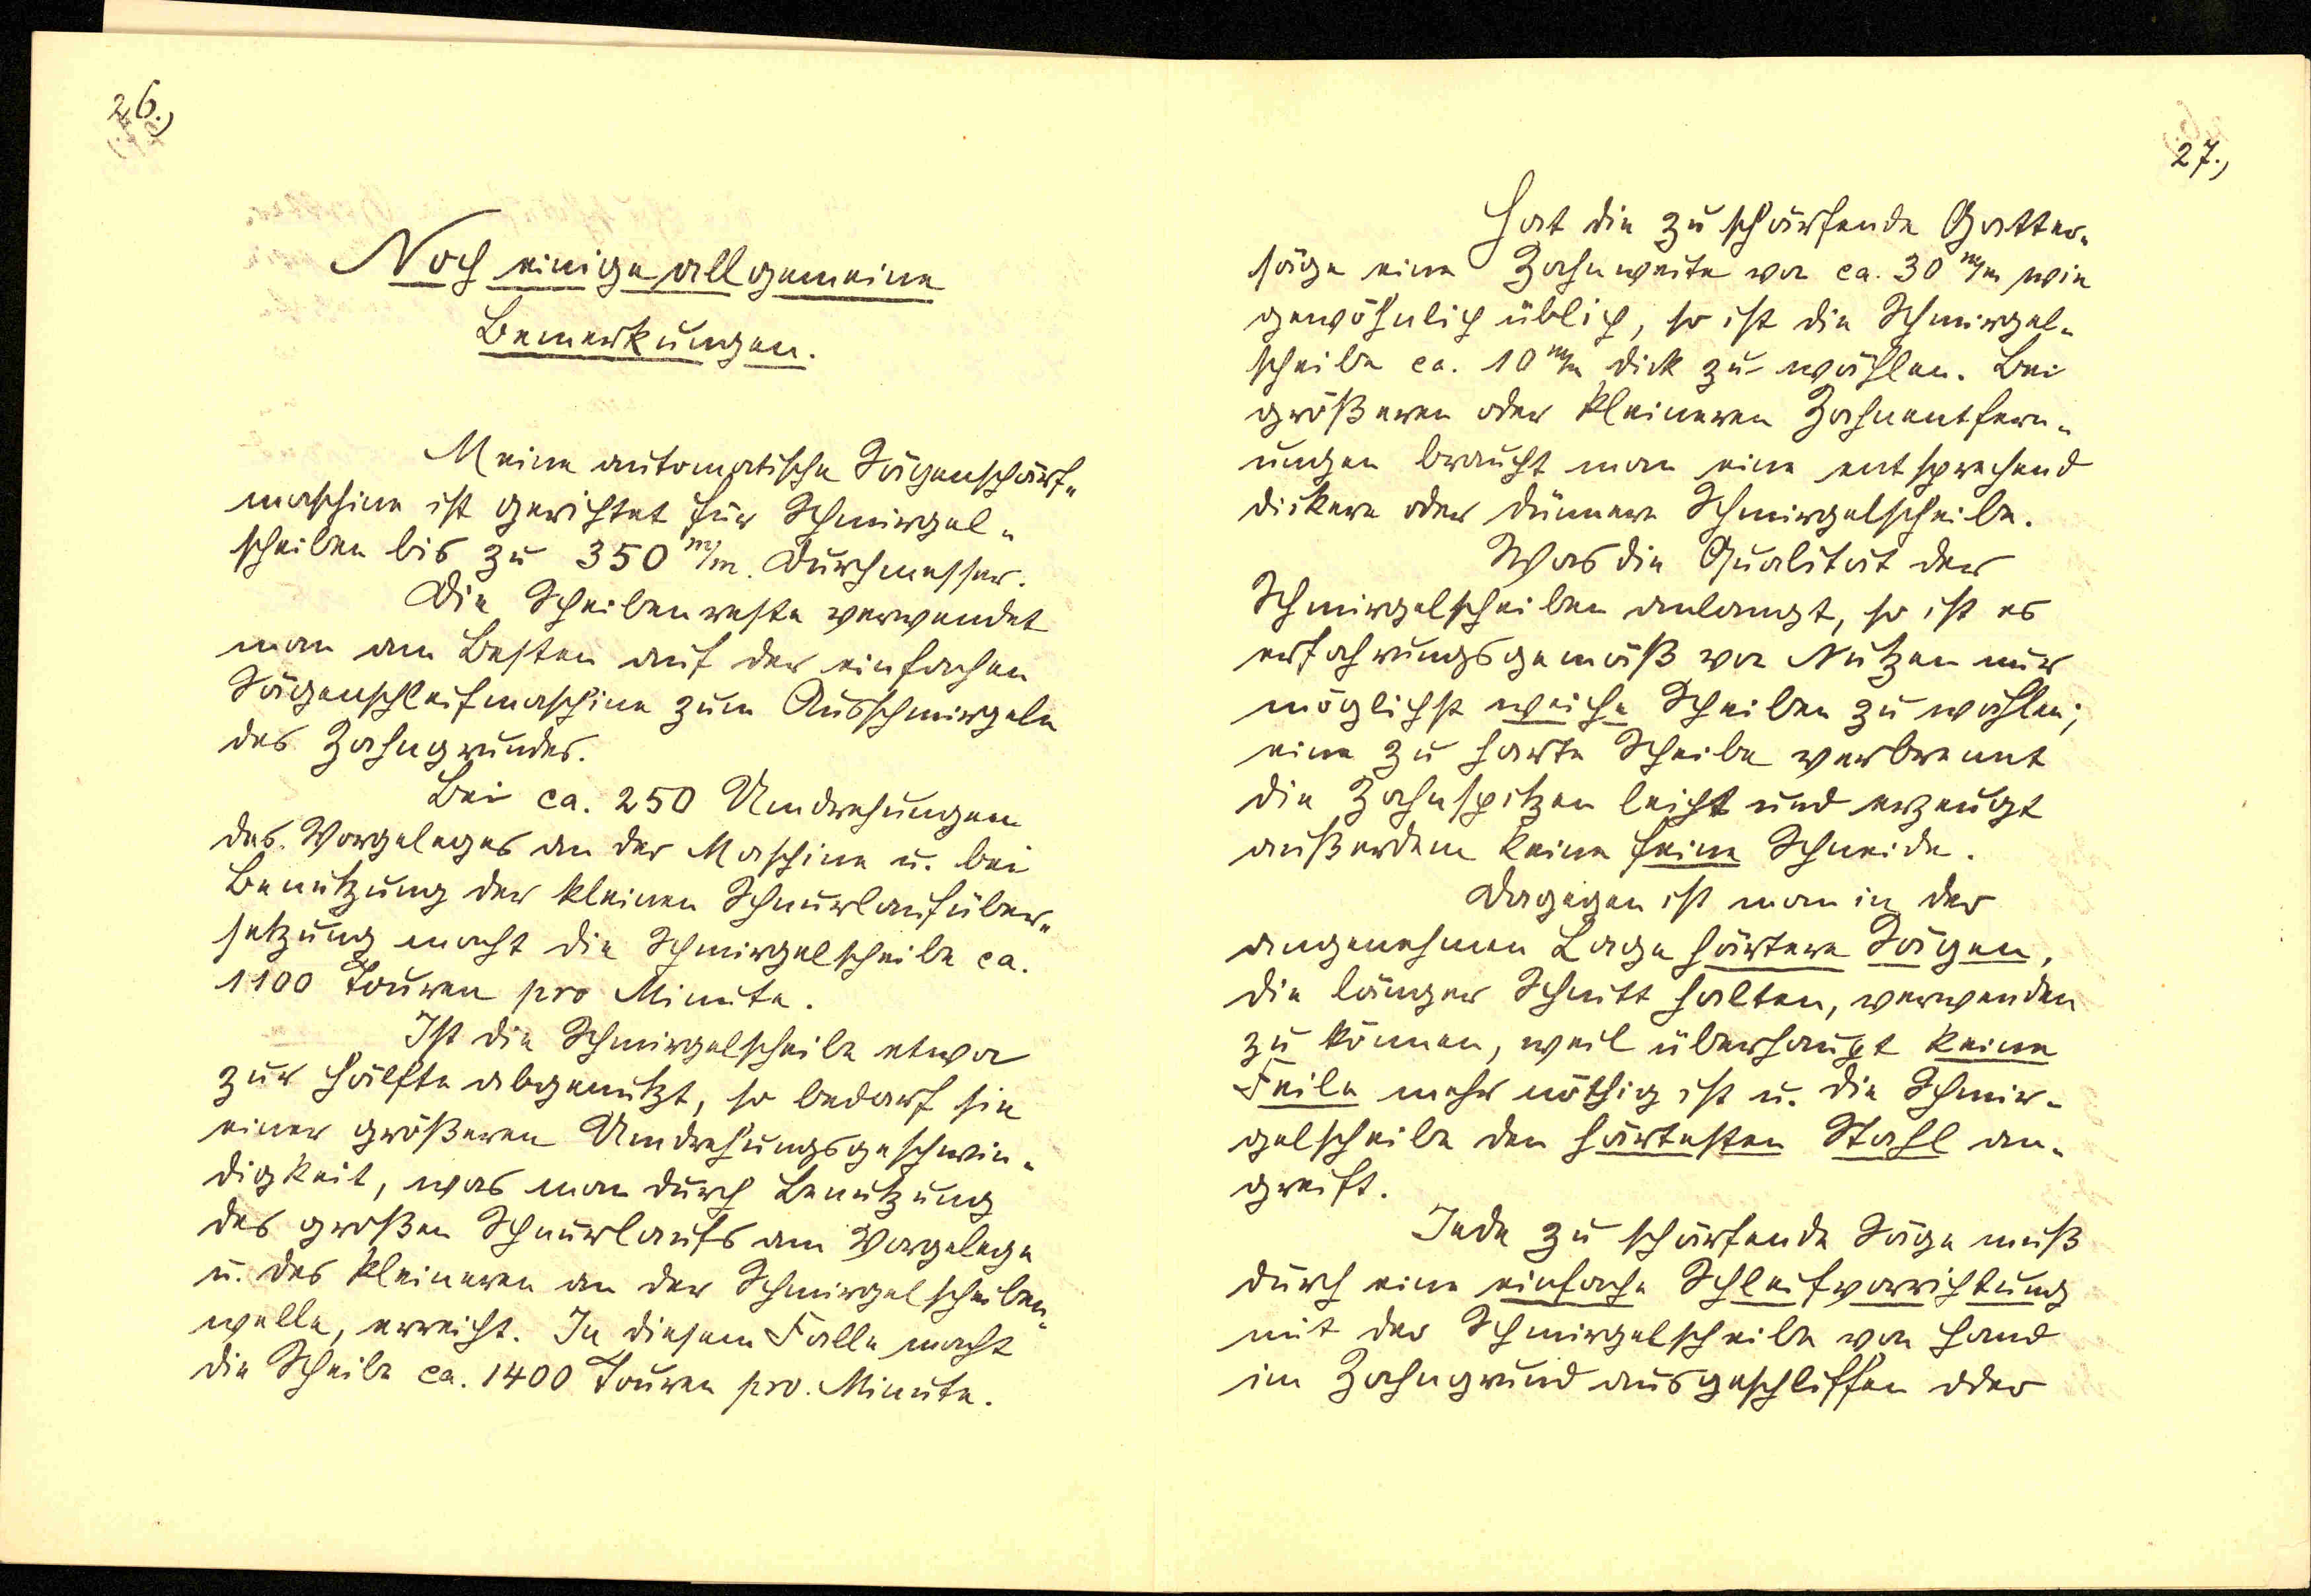 26.)
Noch einige allgemeine
Bemerkungen.
Meine automatische Sägenschärf-
maschine ist gerichtet für Schmirgel-
scheiben bis zu 350 m/m. Durchmesser.
Die Scheibenreste verwendet
man am Besten auf der einfachen
Sägenschleifmaschine zum Ausschmirgeln
des Zahngrundes.
Bei ca. 250 Umdrehungen
des Vorgeleges an der Maschine u. bei
Benutzung der kleinen Schnurlaufüber-
setzung macht die Schmirgelscheibe ca.
1100 Touren pro Minute.
Ist die Schmirgelscheibe etwa
zur Hälfte abgenutzt, so bedarf sie
einer größeren Umdrehungsgeschwin-
digkeit, was man durch Benutzung
des großen Schnurlaufs am Vorgelege
u. des kleineren an der Schmirgelscheiben-
welle, erreicht. In diesem Falle macht
die Scheibe ca. 1400 Touren pro. Minute.
27.)
Hat die zu schärfende Gatter-
säge eine Zahnweite von ca. 30 m/m wie
gewöhnlich üblich, so ist die Schmirgel-
scheibe ca. 10 m/m dick zu wählen. Bei
größeren oder kleineren Zahnentfern-
ungen braucht man eine entsprechend
dickere oder dünnere Schmirgelscheibe.
Was die Qualität der
Schmirgelscheiben anlangt, so ist es
erfahrungsgemäß von Nutzen nur
möglichst weiche Scheiben zu wählen;
eine zu harte Scheibe verbrennt
die Zahnspitzen leicht und erzeugt
außerdem keine feine Schneide.
Dagegen ist man in der
angenehmen Lage härtere Sägen,
die länger Schnitt halten, verwenden
zu können, weil überhaupt keine
Feile mehr nöthig ist u. die Schmir-
gelscheibe den härtesten Stahl an-
greift.
Jede zu schärfende Säge muß
durch eine einfache Schleifvorrichtung
mit der Schmirgelscheibe von Hand
im Zahngrund ausgeschliffen oder